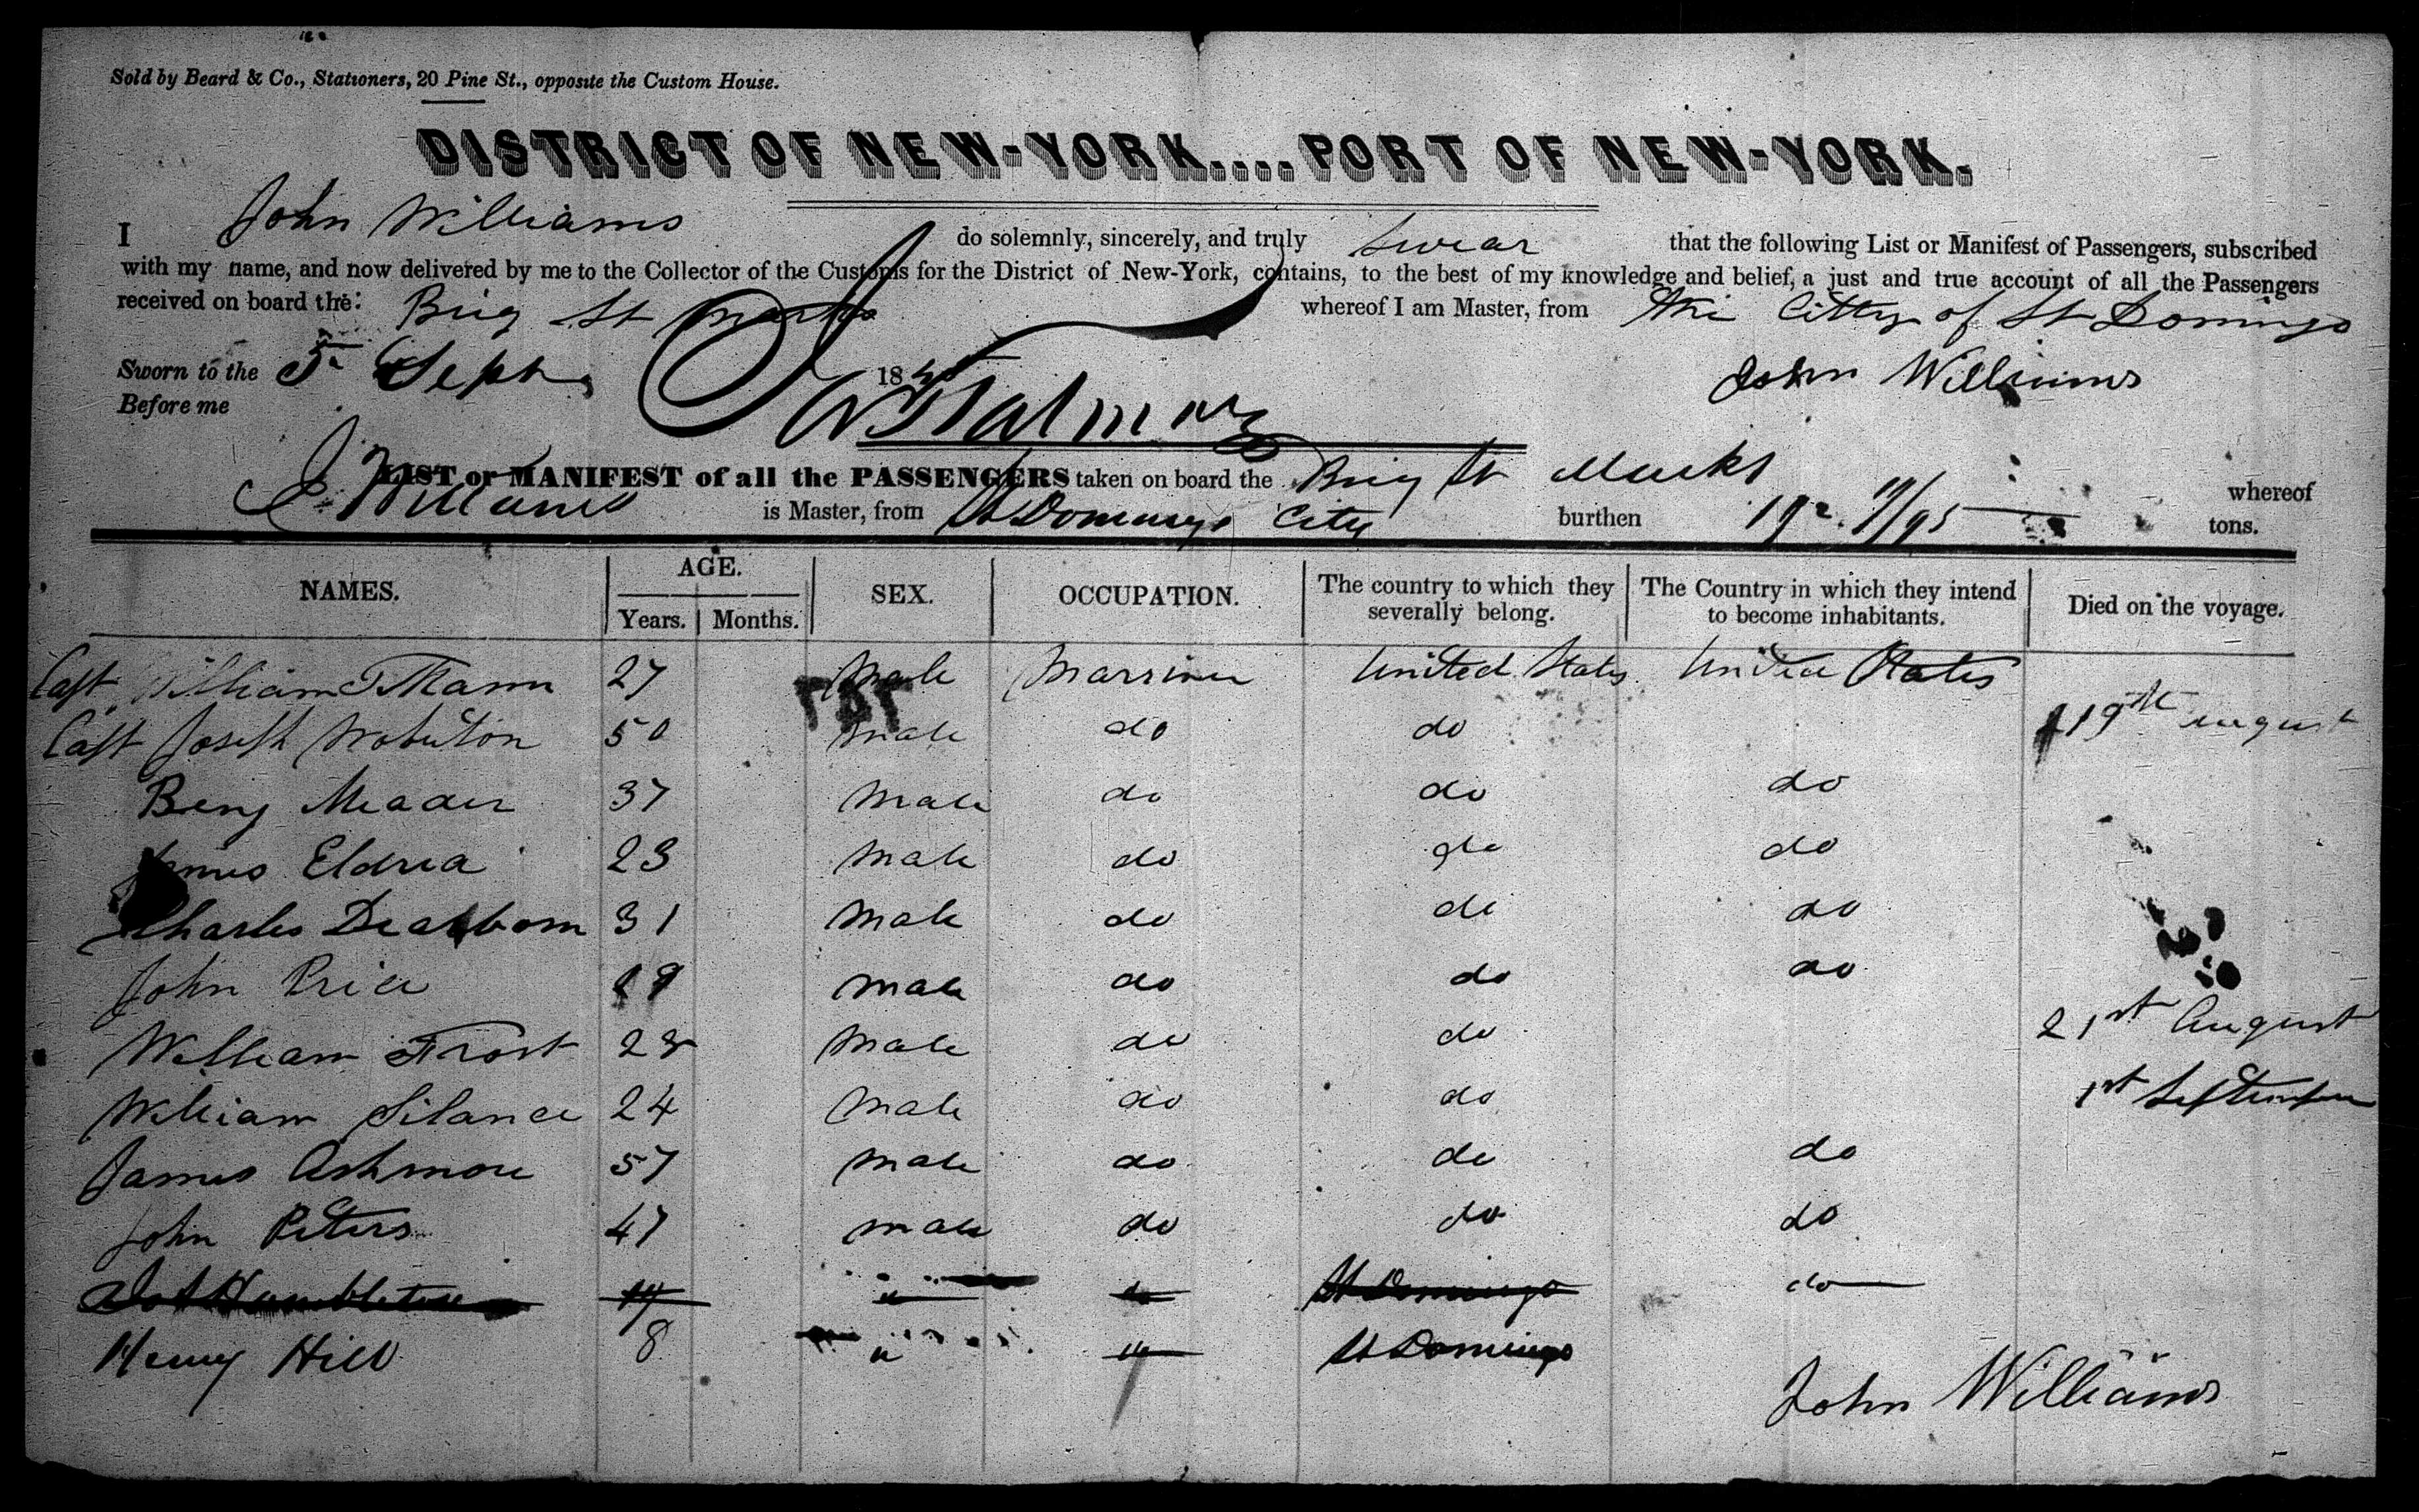 Sold by Beard & Co., Stationers, 20 Pine St., opposite the Custom House.
DISTRICT OF NEW-YORK....PORT OF NEW-YORK.
I John Williams do solemnly, sincerely, and truly swear that the following List or Manifest of Passengers, subscribed
with my name, and now delivered by me to the Collector of the Customs for the District of New-York, contains, to the best of my knowledge and belief, a just and true account of all the Passengers
received on board the Brig St Marks whereof I am Master, from the Citty of St Domingo
Sworn to the 5 Sept 184 John Williams
Before me
LIST or MANIFEST of all the PASSENGERS taken on board the Brig St Marks whereof
J Williams is Master, from St Domingo City burthen 192 11/95 tons.
NAMES. AGE. SEX. OCCUPATION. The country to which they severally belong. The Country in which they intend to become inhabitants. Died on the voyage.
Years. Months.
Capt William T Mann 27 Male Marriner United States United States
Capt Joseph 50 male do do 19th august
Benj Meader 37 Male do do do
James Eldrea 23 Male do do do
Charles Dearborn 31 Male do do do
John Price 19 Male do do do
William Frost 28 Male do do 21st August
William Silance 24 Male do do 1st September
James Ashmore 57 Male do do do
John Peters 47 male do do do
St Domingo do
Henry Hill 8 " " St Domingo
John Williams